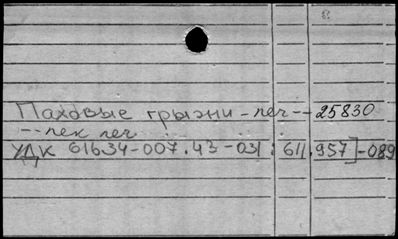 Паховые грыжи - леч -- 25830
-- лек леч
УДК 61634-007.43-031:611.957]-089